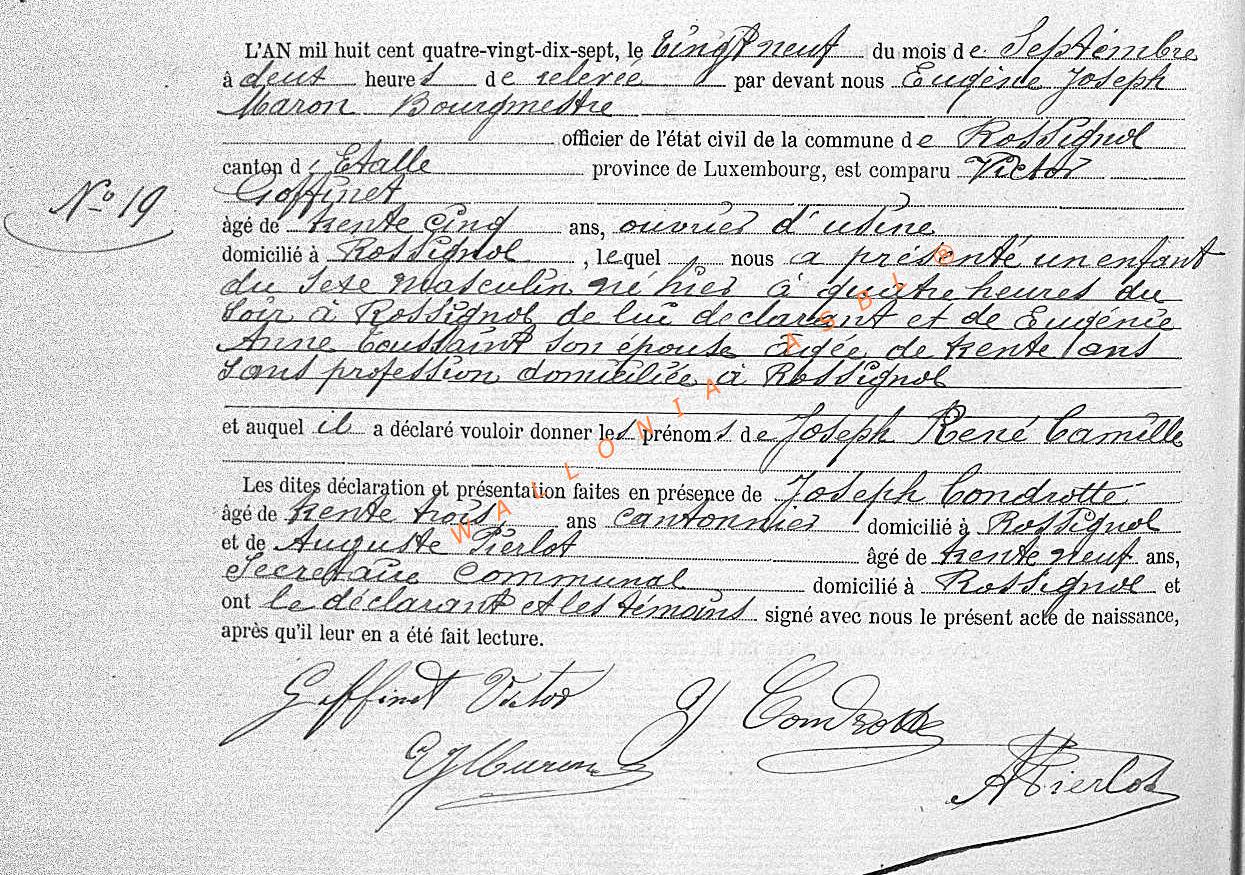 L'AN mil huit cent quatre-vingt-dix-sept, le Vingt neuf du mois de Septembre
à deux heures de relevée par devant nous Eugène Joseph
Maron Bourgmestre
officier de l'état civil de la commune de Rossignol
canton d'Etalle province de Luxembourg, est comparu Victor
Goffinet
N° 19
âgé de trente cinq ans, ouvrier d'usine
domicilié à Rossignol, lequel nous a présenté un enfant
du sexe masculin né hier à quatre heures du
soir à Rossignol de lui déclarant et de Eugénie
Anne Toussaint son épouse âgée de trente ans
sans profession domiciliée à Rossignol
et auquel il a déclaré vouloir donner les prénoms de Joseph René Camille
Les dites déclaration et présentation faites en présence de Joseph Condrotte
âgé de trente trois ans cantonnier domicilié à Rossignol
et de Auguste Pierlot âgé de trente neuf ans,
Secrétaire communal domicilié à Rossignol et
ont le déclarant et les témoins signé avec nous le présent acte de naissance,
après qu'il leur en a été fait lecture.
Goffinet Victor J Condrotte
EJMaron
APierlot
WALLONIA ASBL ©